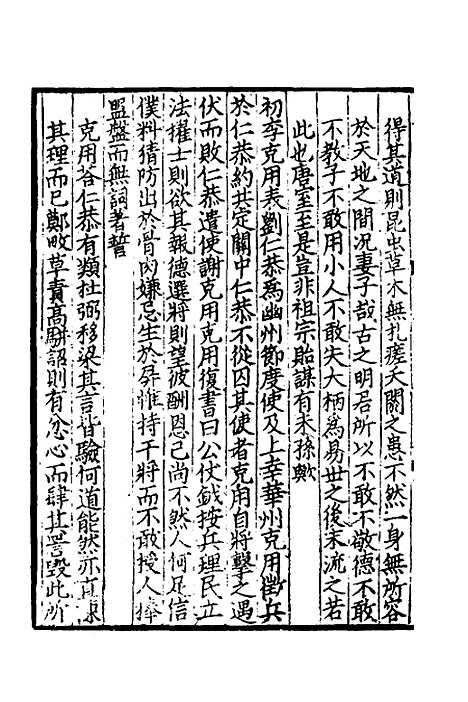 得其道則昆虫草木無扎瘥夭閼之患不然一身無所容
於天地之間况妻子哉古之明君所以不敢不敬德不敢
不教子不敢用小人不敢失大柄為易世之後末流之若
此也唐室至是豈非祖宗貽謀有未孫歟
初李克用表劉仁恭為幽州節度使及上幸華州克用徵兵
於仁恭約共定關中仁恭不從囚其使者克用自將擊之遇
伏而敗仁恭遣使謝克用克用復書曰公仗鉞按兵理民立
法擢士則欲其報德選將則望彼酬恩己尚不然人何足信
僕料猜防出於骨肉嫌忌生於屏帷持干將而不敢授人捧
盟盤而無詞著誓
克用荅仁恭有類杜弼移梁其言皆驗何道能然亦直
其理而已鄭畋草責高駢詔則有忿心而肆其詈毀此所